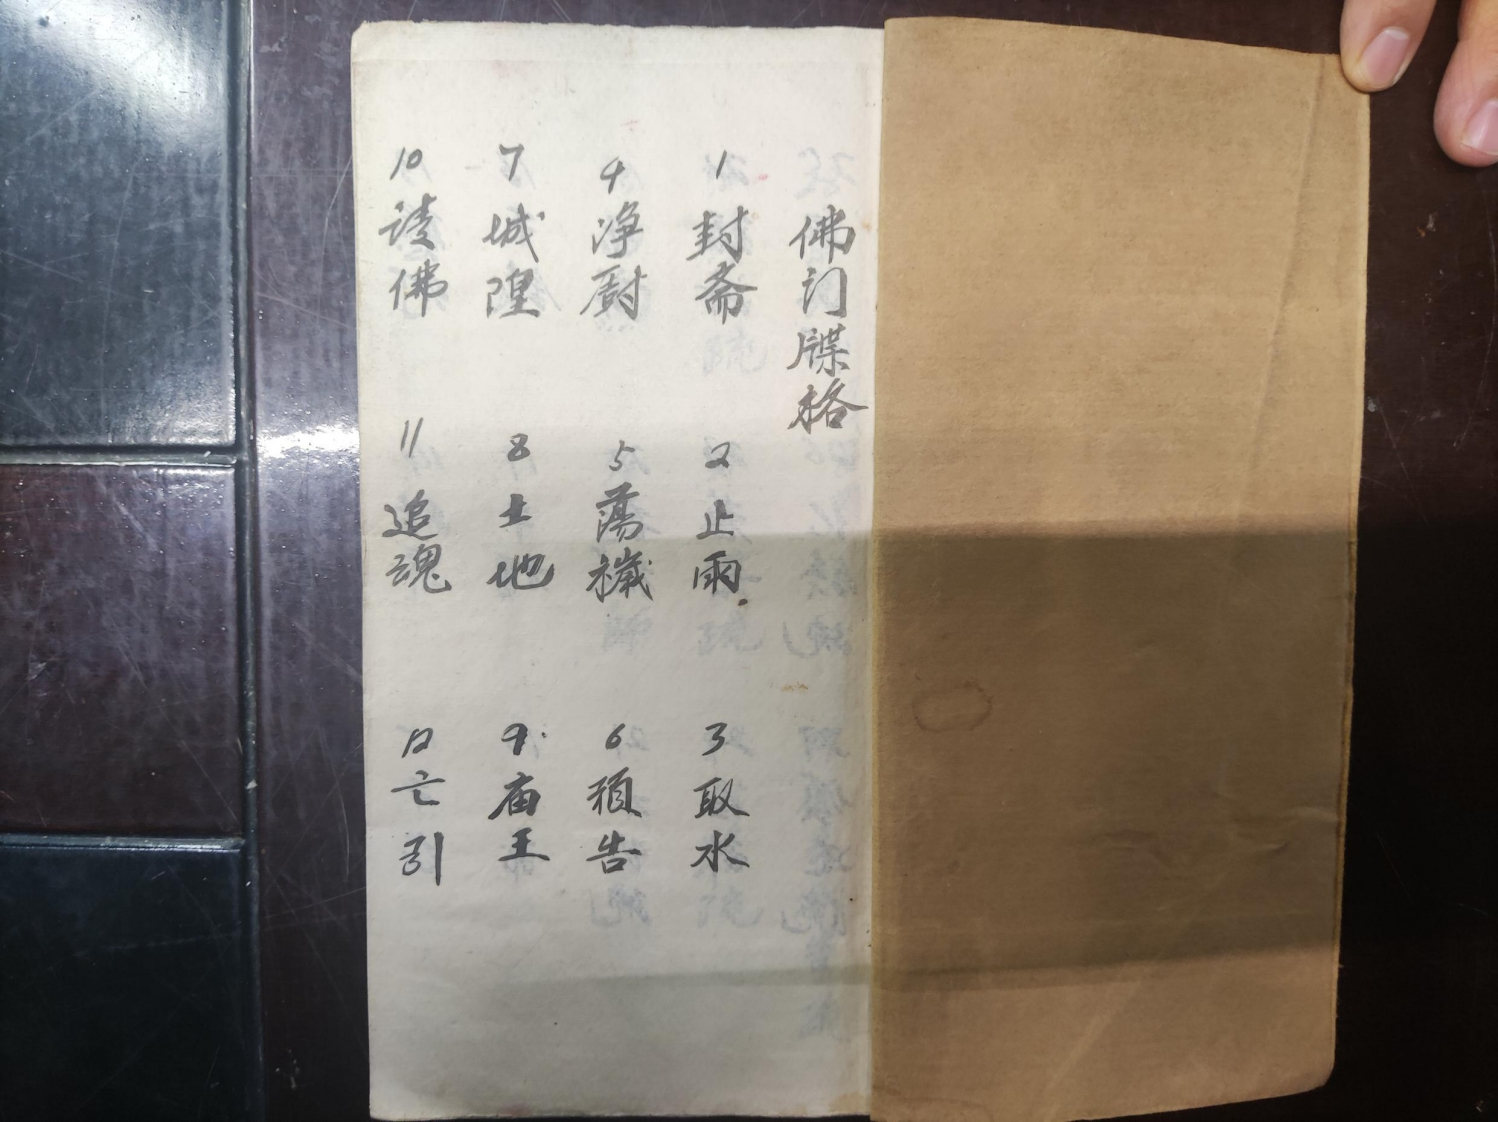 佛门牒格
1 封斋
2 止雨
3 取水
4 净厨
5 蕩穢
6 預告
7 城隍
8 土地
9 庙王
10 请佛
11 追魂
12 亡引